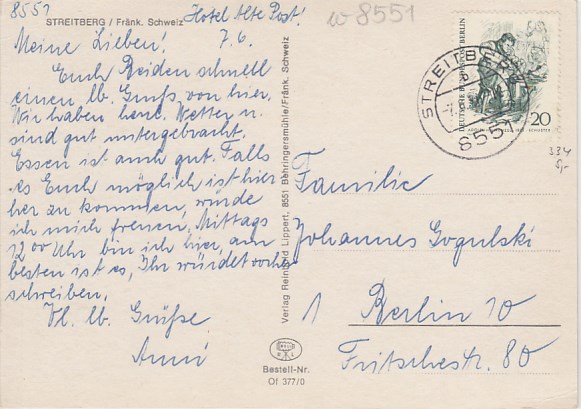 8551
w 8551
STREITBERG / Fränk. Schweiz
Hotel Alte Post!
Meine Lieben! 7.6.
Euch Beiden schnell
einen lb. Gruß von hier.
Wir haben herl. Wetter u.
sind gut untergebracht.
Essen ist auch gut. Falls
es Euch möglich ist hier
her zu kommen, würde
ich mich freuen, Mittags
12 00 Uhr bin ich hier, am
besten ist es, Ihr würdet vorher
schreiben.
Vl. lb. Grüße
Anni
Verlag Reinhold Lippert, 8551 Behringersmühle/Fränk. Schweiz
Bestell-Nr.
Of 377/0
STREITBERG
8551
DEUTSCHE BUNDESPOST BERLIN
20
334
Familie
Johannes Gogulski
1 Berlin 10
Fritschestr. 80